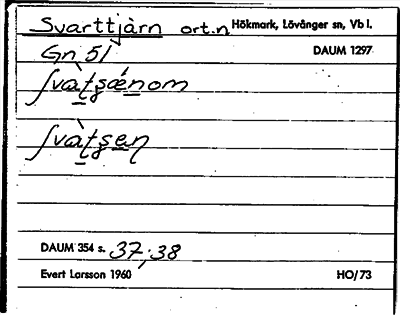 Svarttjärn ort.n Hökmark, Lövånger sn, Vb l.
Gn 51 DAUM 1297
ʃvàtsǽnom
ʃvàtsen
DAUM 354 s. 37; 38
Evert Larsson 1960 HO/73